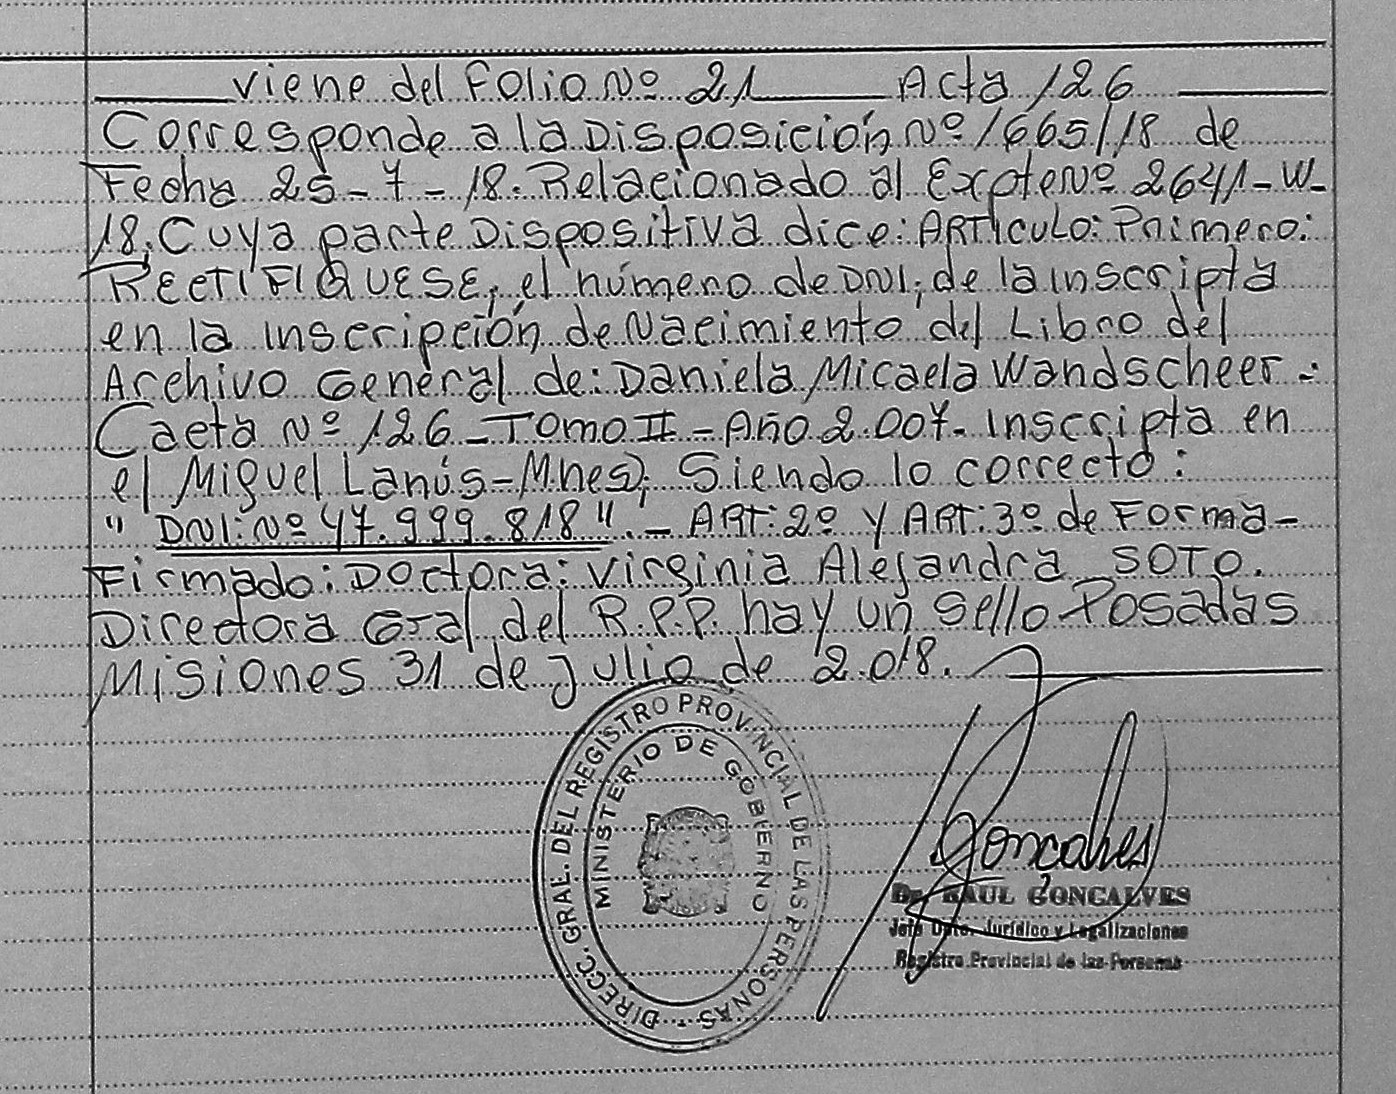 viene del Folio Nº 21 Acta 126
Corresponde a la Disposición Nº 1665/18 de
Fecha 25-7-18. Relacionado al Expte Nº 2641-W-
18, Cuya parte Dispositiva dice: ARTICULO: Primero:
RECTIFIQUESE, el número de DNI, de la inscripta
en la inscripción de Nacimiento del Libro del
Archivo General de: Daniela Micaela Wandscheer -
Caeta Nº 126 - TOMO II - Año 2.007- Inscripta en
el Miguel Lanús - Mnes), Siendo lo correcto:
" DNI: Nº 47.999.818". - ART: 2º Y ART: 3º de Forma-
Firmado: Doctora: Virginia Alejandra SOTO.
Directora Gral del R.P.P. hay un sello Posadas
Misiones 31 de Julio de 2.018.
DIRECC. GRAL. DEL REGISTRO PROVINCIAL DE LAS PERSONAS
MINISTERIO DE GOBIERNO
Gonçalves
Dr. RAUL GONCALVES
Jefe Dpto. Jurídico y Legalizaciones
Registro Provincial de las Personas